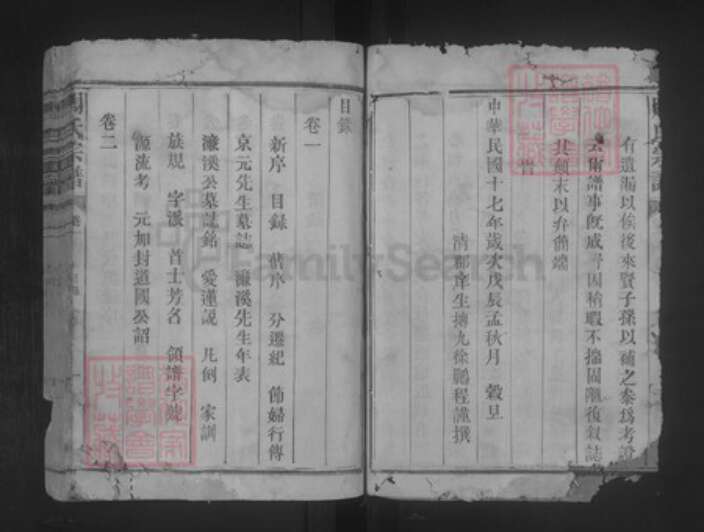 有遺漏以俟後來賢子孫以補之豢爲考證
云爾譜事既成予因稍暇不揣固陋復敘誌
其顛末以弁備端
中華民國十七年歲次戊辰孟秋月 穀旦
清郡庠生摶九徐鵬程謹撰
目錄
卷一
新序 目錄 舊序 分遷紀 節婦行傳
京元先生墓誌 濂溪先生年表
濂溪公墓誌銘 愛蓮說 凡例 家訓
族規 字派 首士芳名 領譜字號
卷二
源流考 元加封道國公詔
周氏宗譜 卷一
FamilySearch